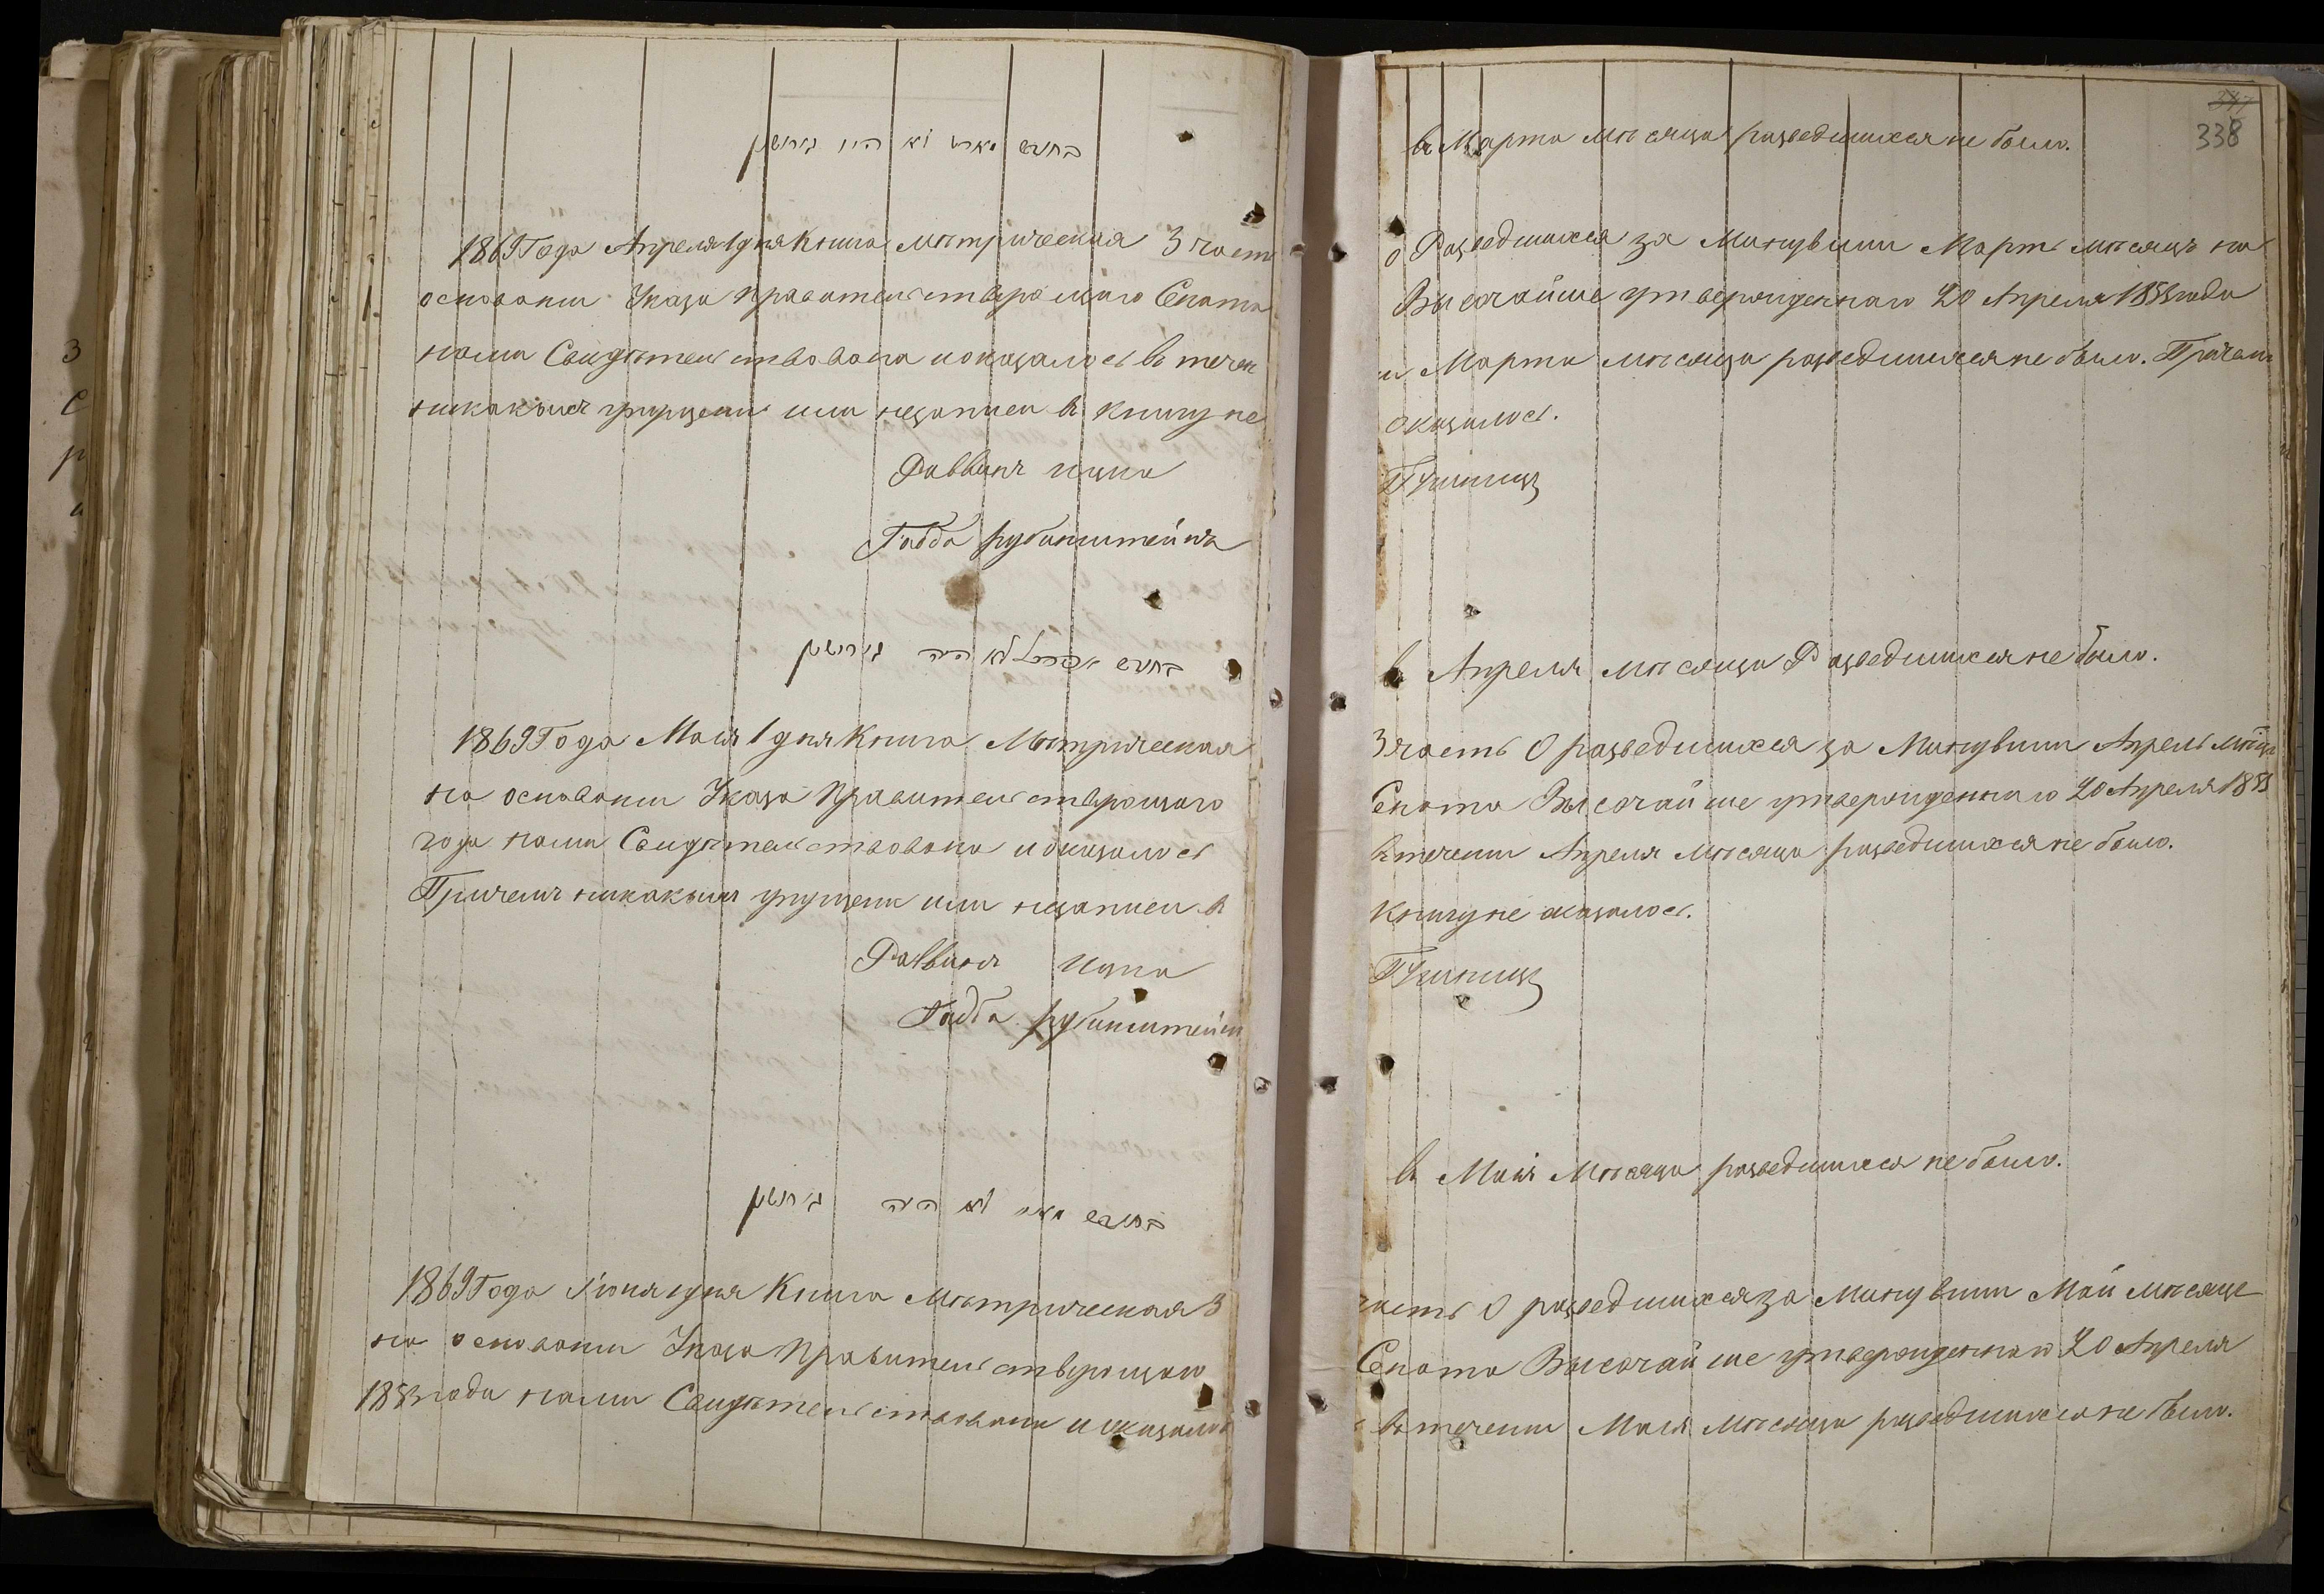 בחודש מארט לא היו גירושין
1869 Года Апреля 1 дня Книга Мѣтрическая 3 часть
основании Указа правительствующаго Сената
нами Свидѣтельствована и оказалось въ течен
никакихъ упущени или незаписи въ книгу не
Раввинъ Ицка
Габба рубинштейнъ
בחודש אפריל לא היה גירושין
1869 Года Мая 1 дня Книга Мѣтрическая
на основании Указа правительствующаго
года нами Свидѣтельствована и оказалось
Причемъ никакихъ упущени или незаписи въ
Раввинъ Ицка
Габба рубинштейн
בחודש מאי לא היה גירושין
1869 Года Июня 1 дня Книга Мѣтрическая 3
на основании Указа Правительствующаго
1853 года нами Свидѣтельствована и оказалось
338
въ Марта мѣсяца разведшихся не было.
о Разведшихся за Минувши Мартъ мѣсяцъ на
Высочайше утвержденнаго 20 Апреля 1853 года
и Марта мѣсяца разведшихся не было. Причемъ
оказалось.
въ Апреля мѣсяца Разведшихся не было.
3 часть О разведшихся за Минувши Апрель мѣсяц
Сената Высочайше утвержденнаго 20 Апреля 1853
въ течении Апреля мѣсяца разведшихся не было.
Книгу не оказалось.
въ Мая Мѣсяца разведшихся не было.
часть О разведшихся за Минувши Май мѣсяцъ
Сената Высочайше утвержденнаго 20 Апреля
въ течении Мая мѣсяца разведшихся не было.